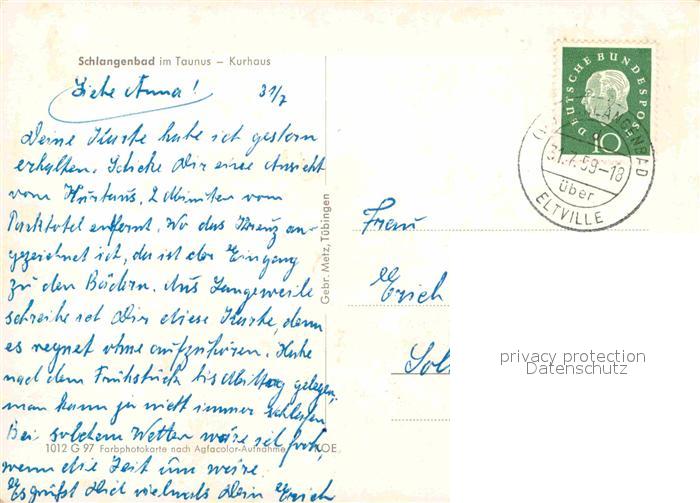 Schlangenbad im Taunus – Kurhaus
Liebe Anna! 31/7
Deine Karte habe ich gestern
erhalten. Schicke Dir eine Ansicht
vom Kurhaus, 2 Minuten vom
Parkhotel entfernt. Wo das Kreuz an-
gezeichnet ist, da ist der Eingang
zu den Bädern. Aus Langeweile
schreibe ich Dir diese Karte, denn
es regnet ohne aufzuhören. Habe
nach dem Frühstück bis Mittag gelegen,
man kann ja nicht immer schlafen
Bei solchem Wetter wäre ich froh,
wenn die Zeit um wäre.
Es grüßt Dich vielmals Dein Erich
1012 G 97 Farbphotokarte nach Agfacolor-Aufnahme
Gebr. Metz, Tübingen
DEUTSCHE BUNDESPOST
10
SCHLANGENBAD
31.7.59-18
über
ELTVILLE
Frau
Erich
privacy protection
Datenschutz